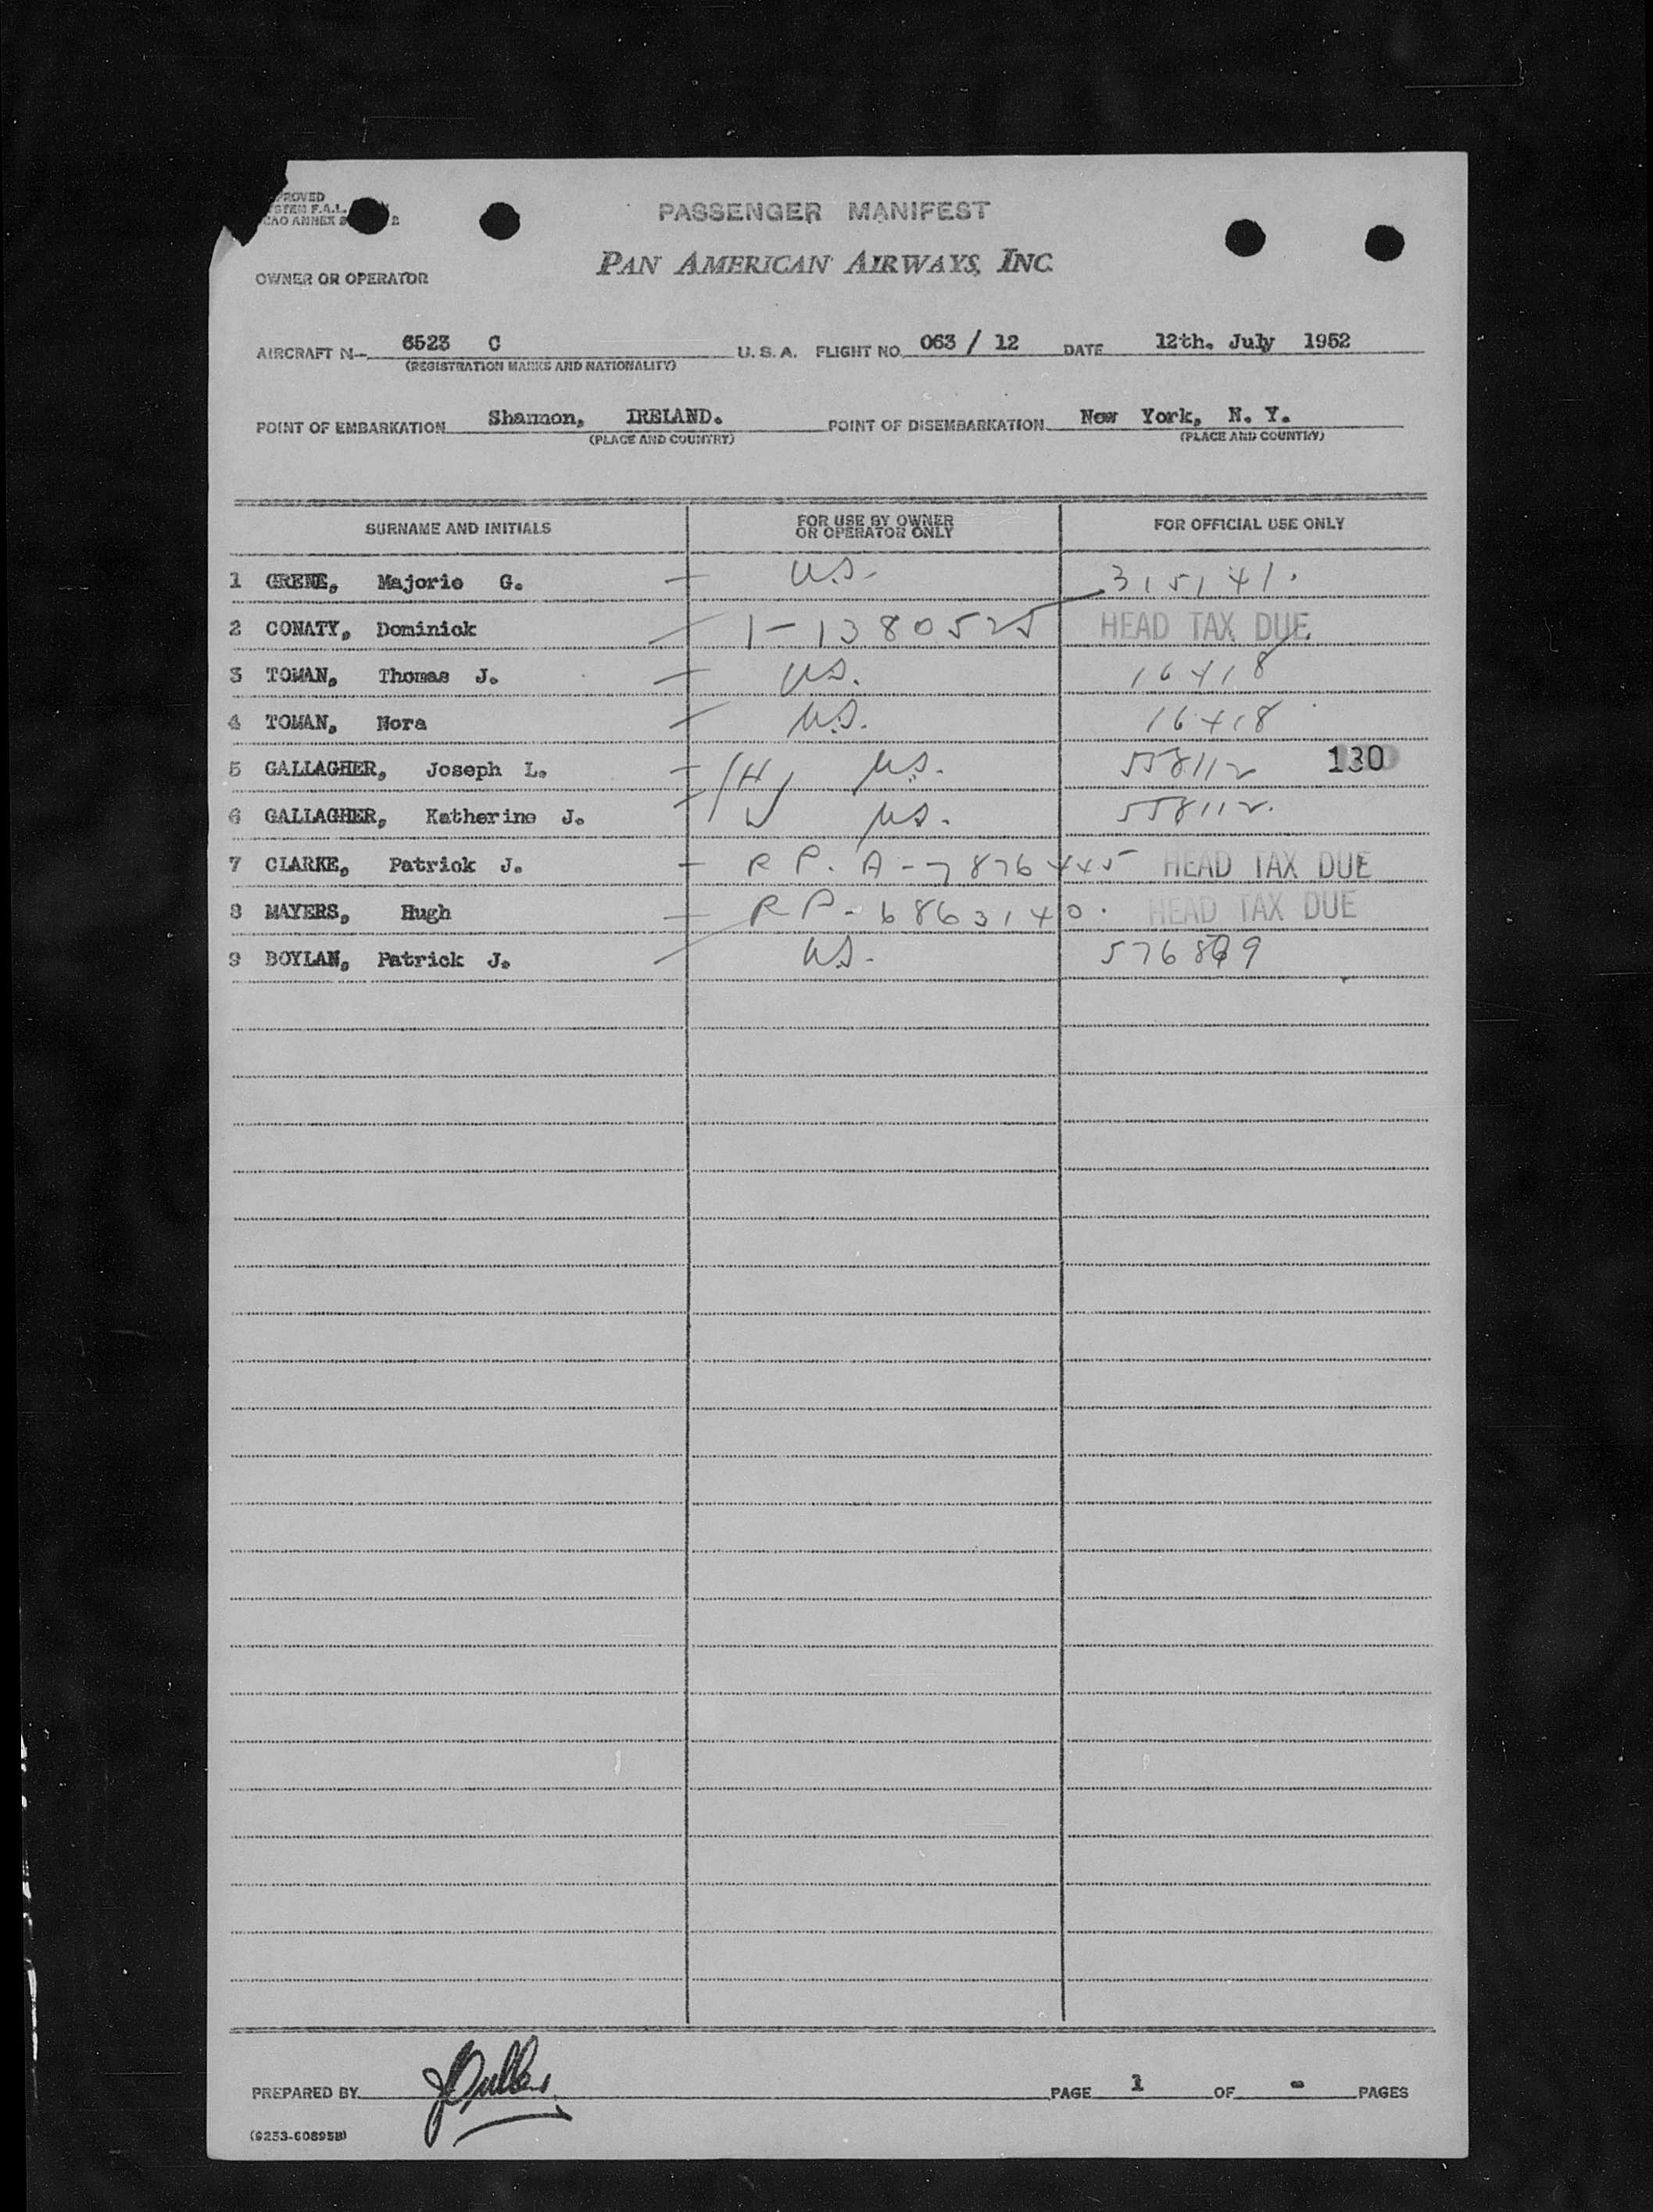 PROVED
STEM F.A.L.
CAO ANNEX 9
PASSENGER MANIFEST
PAN AMERICAN AIRWAYS, INC.
OWNER OR OPERATOR
AIRCRAFT N- 6523 C U. S. A. FLIGHT NO. 063 / 12 DATE 12th. July 1952
(REGISTRATION MARKS AND NATIONALITY)
POINT OF EMBARKATION Shannon, IRELAND. POINT OF DISEMBARKATION New York, N. Y.
(PLACE AND COUNTRY) (PLACE AND COUNTRY)
SURNAME AND INITIALS FOR USE BY OWNER OR OPERATOR ONLY FOR OFFICIAL USE ONLY
1 GRENE, Majorie G. U.S. 315141.
2 CONATY, Dominick 1-1380525 HEAD TAX DUE
3 TOMAN, Thomas J. U.S. 16418
4 TOMAN, Nora U.S. 16418
5 GALLAGHER, Joseph L. H U.S. 558112 130
6 GALLAGHER, Katherine J. W U.S. 558112.
7 CLARKE, Patrick J. R P. A-7876445 HEAD TAX DUE
8 MAYERS, Hugh R P - 6863140. HEAD TAX DUE
9 BOYLAN, Patrick J. U.S.
PREPARED BY PAGE 1 OF - PAGES
(9253-60895B)